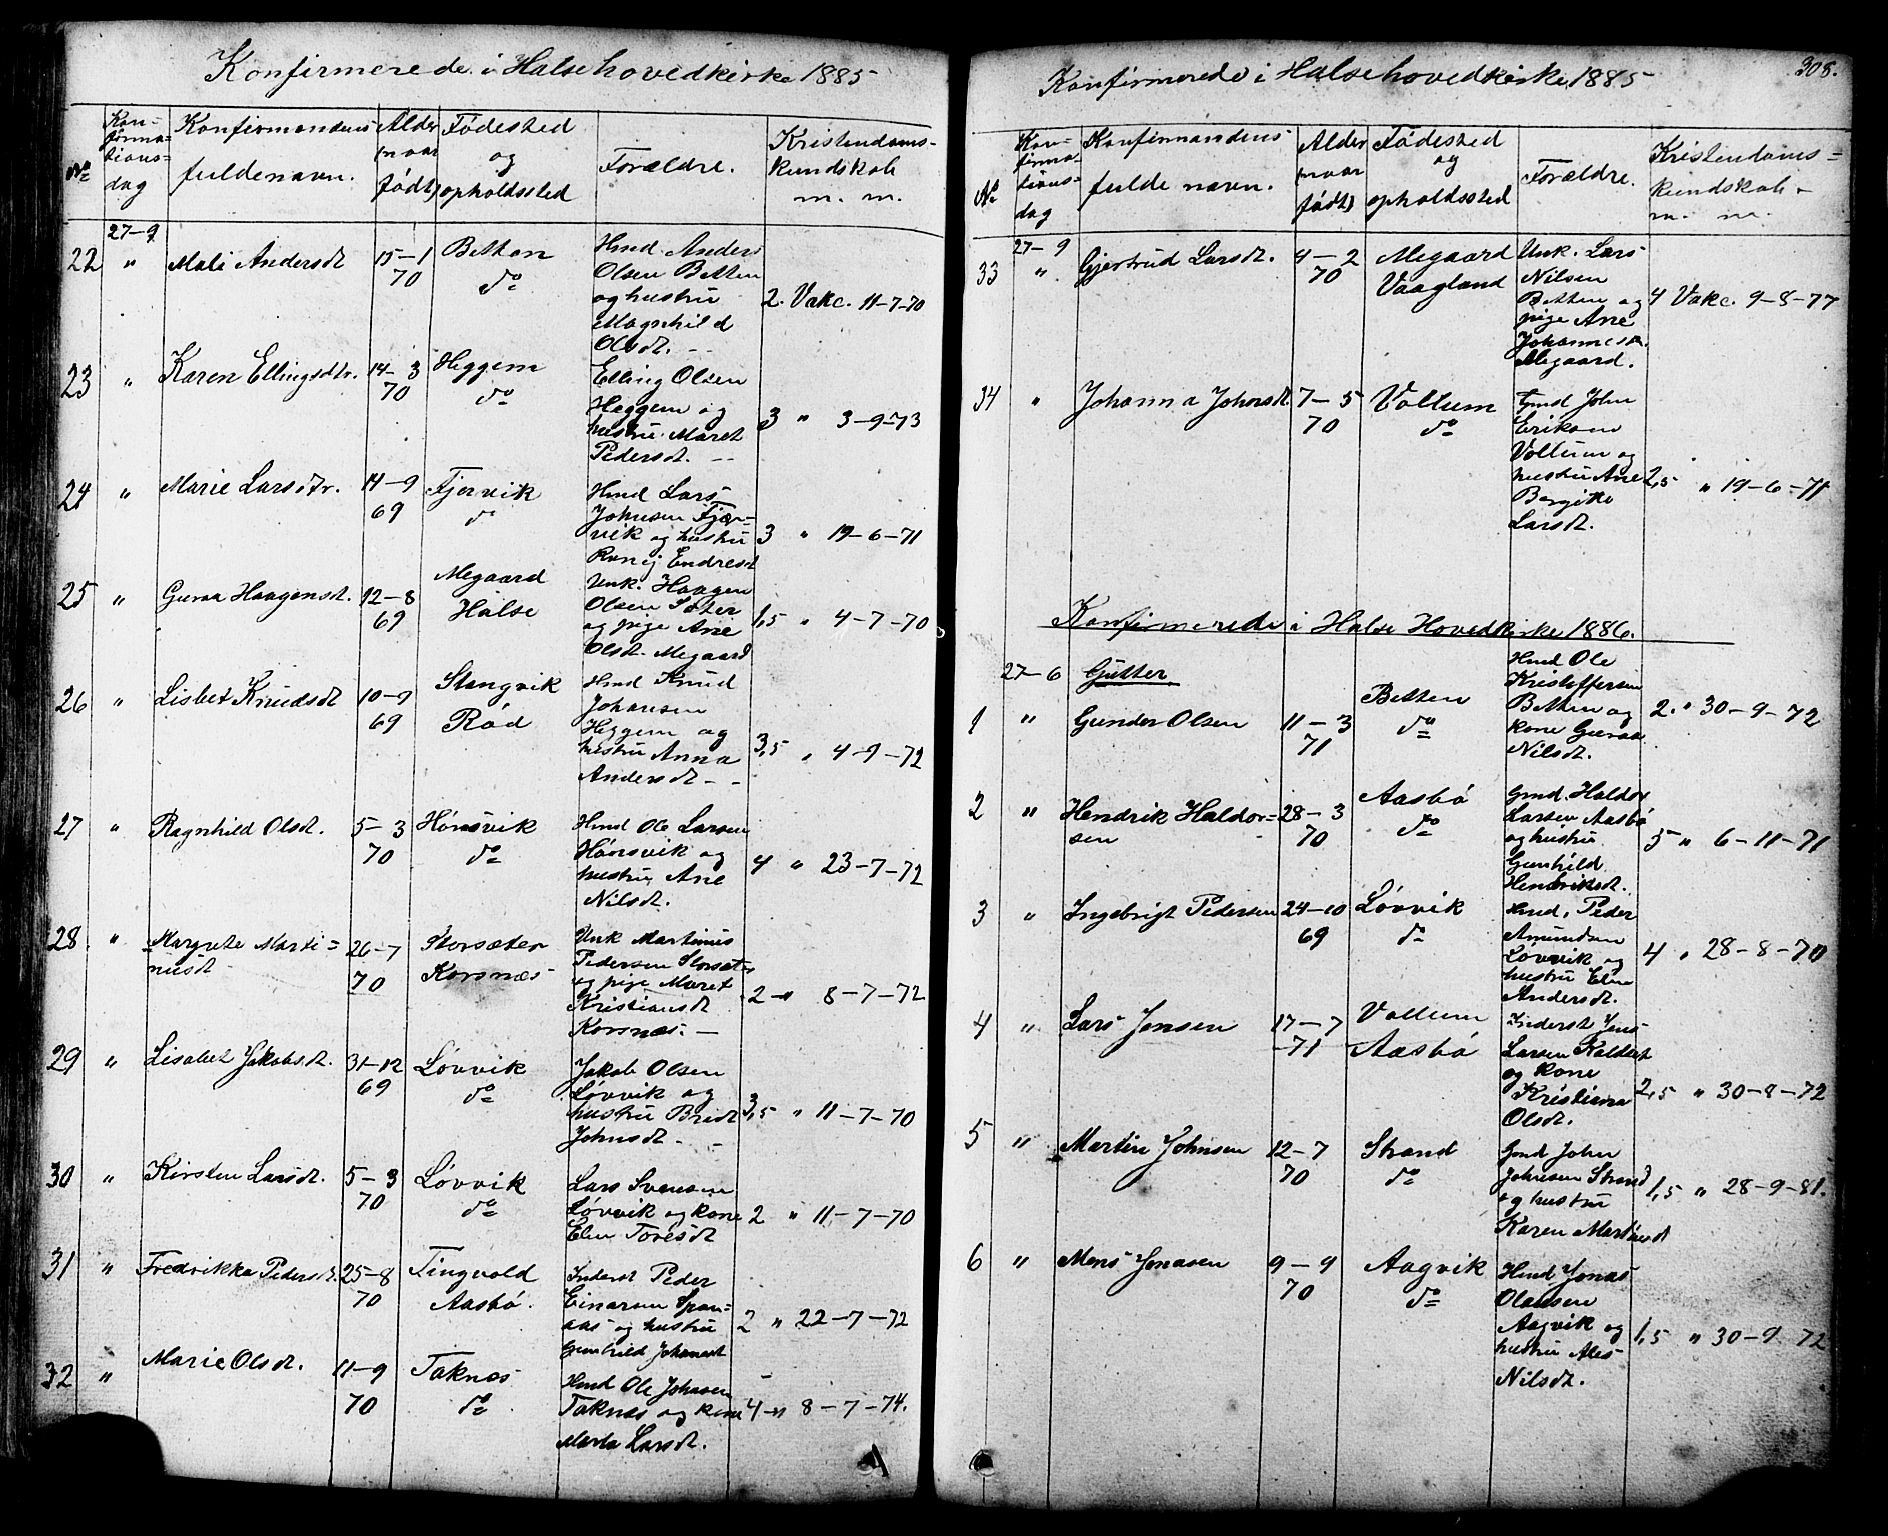 Konfirmerede i Halse hovedkirke 1885
No
Kon-
firma-
tions-
dag
Konfirmandens
fulde navn.
Alder
(naar
født)
Fødested
og
opholdssted
Forældre.
Kristendoms-
kundskab
m. m.
22
27-9
"
Mali Andersdt
15-1
70
Betten
do
Hmd Anders
Olsen Betten
og hustru
Magnhild
Olsdt. --
2. Vakc. 11-7-70
23
"
Karen Ellingsdtr.
14-3
70
Heggem
do
Elling Olsen
Heggem og
hustru Maret
Pedersdt. --
3 " 3-9-73
24
"
Marie Larsdtr.
14-9
69
Fjervik
do
Hmd Lars
Johnsen Fjær-
vik og hustru
Ronig Endresdt
3 " 19-6-71
25
"
Guraa Haagensdt.
12-8
69
Megaard
Halse
Unk. Haagen
Olsen Sæter
og pige Ane
Olsdt. Megaard
1,5 " 4-7-70
26
"
Lisbet Knudsdt
10-9
69
Stangvik
Rød
Hmd Knud
Johansen
Heggem og
hustru Anna
Andersdt --
3,5 " 4-9-72
27
"
Ragnhild Olsdt.
5-3
70
Hønsvik
do
Hmd Ole Larsen
Hønsvik og
hustru Ane
Nilsdt.
4 " 23-7-72
28.
"
Margrete Marti=
nusdt
26-7
70
Storsæter
Korsnæs
Unk Martinus
Pedersen Storsæt-
og pige Maret
Kristiansdt
Korsnæs. -
2 " 8-7-72
29
"
Lisabet Jakobsdt.
31-12
69
Løvvik
do
Jakob Olsen
Løvvik og
hustru Bredt
Johnsdt --
3,5 " 11-7-70
30
"
Kirsten Larsdt.
5-3
70
Løvvik
do
Lars Svensen
Løvvik og kone
Elen Toresdt
2 " 11-7-70
31
"
Fredrikke Pedersdt.
25-8
70
Tingvold
Aasbø.
Inderst Peder
Einarsen Span-
aas og hustru
Gunhild Johansdt
2 " 22-7-72
32
"
Marie Olsdt.
11-9
70
Taknæs
do
Hmd Ole Johnsen
Taknæs og kone
Marta Larsdt.
4 " 8-7-74.
308.
Konfirmerede i Halse hovedkirke 1885
No
Kon-
firma-
tions-
dag
Konfirmandens
fulde navn.
Alder
(naar
født)
Fødested
og
opholdssted
Forældre.
Kristendoms=
kundskab -
m. m.
33
27-9
"
Gjertrud Larsdt.
4-2
70
Megaard
Vaagland
Unk. Lars
Nilsen
Betten og
pige Ane
Johannesdt.
Megaard.
4 Vakc. 9-8-77
34
"
Johanna Johnsdt.
7-5
70
Voltum
do
Gmd John
Eriksen
Voltum og
hustru Ane
Bergitte
Larsdt.
2,5 " 19-6-71
Konfirmerede i Halse Hovedkirke 1886.
27-6
Gutter.
1
"
Gunder Olsen
11-3
71
Betten
do
Hmd Ole
Kristoffersen
Betten og
kone Guraa
Nilsdt.
2. " 30-9-72
2
"
Hendrik Haldor=
sen
28-3
70
Aasbø
do
Gmd. Haldor
Larsen Aasbø
og hustru
Gunhild
Hendriksdt.
5 " 6-11-71
3
"
Ingebrigt Pedersen
24-10
69
Løvvik
do
Hmd. Peder
Amundsen
Løvvik og
hustru Elen
Andersdt.
4 " 28-8-70
4
"
Lars Jensen
17-7
-71
Voltum
Aasbø
Inderst Jens
Larsen
og kone
Kristiana
Olsdt.
2,5 " 30-8-72
5
"
Martin Johnsen
12-7
70
Strand
do
Gmd John
Johnsen Strand
og hustru
Karen Martinsdt
1,5 " 28-9-81.
6
"
Mons Jonasen
9-9
70
Aagvik
do
Hmd Jonas
Olausen
Aagvik og
hustru Ales
Nilsdt.
1,5 " 30-9 72